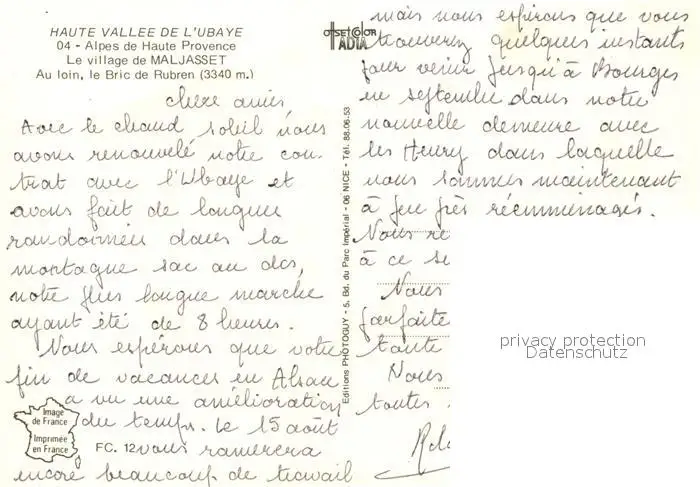 HAUTE VALLEE DE L'UBAYE
04 - Alpes de Haute Provence
Le village de MALJASSET
Au loin, le Bric de Rubren (3340 m.)
OFFSET COLOR
ADIA
chers amis,
Avec le chaud soleil nous
avons renouvelé notre con-
trat avec l'Ubaye et
avons fait de longues
randonnées dans la
montagne sac au dos,
notre plus longue marche
ayant été de 8 heures.
Nous espérons que votre
fin de vacances en Alsace
a vu une amélioration
du temps. Le 15 août
vous ramènera
encore beaucoup de travail
Image
de France
Imprimée
en France
FC. 12
Editions PHOTOGUY - 5, Bd. du Parc Impérial - 06 NICE - Tél. 88.06.53
mais nous espérons que vous
trouverez quelques instants
pour venir jusqu'à Bourges
en septembre dans notre
nouvelle demeure avec
les Henry dans laquelle
nous sommes maintenant
à peu près réemménagés.
Nous re
à ce se
Nous
parfaite
toute
Nous
toutes
privacy protection
Datenschutz